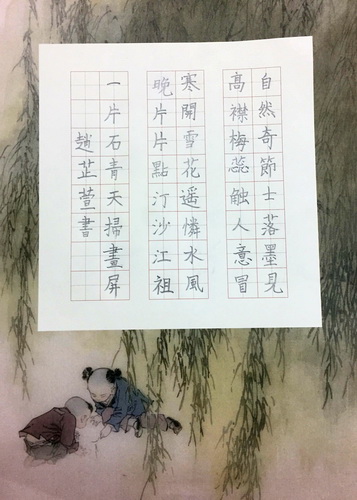 自然奇節士落墨見
高襟梅蕊触人意冒
寒開雪花遥憐水風
晚片片點汀沙江祖
一片石青天掃畫屏
趙芷萱書